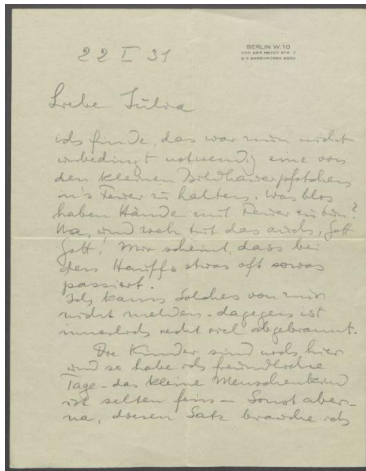 BERLIN W.10
VON DER HEYDT STR.
22 I 31
Liebe Julia
ich finde, das war nun nicht
unbedingt notwendig eine von
den kleinen Bildhauerpfötchen
in's Feuer zu halten. Was blos
haben Hände mit Feuer zu tun?
Na, und weh tut das auch, Gott
Gott! Mir scheint, dass bei
den Hauffs etwas oft sowas
passiert.
Ich kann Solches von mir
nicht melden. dagegen ist
innerlich recht viel abgebrannt.
Die Kinder sind noch hier
und so habe ich freundliche
Tage - das kleine Menschenkind
ist selten fein - Sonst aber -
na, diesen Satz brauche ich